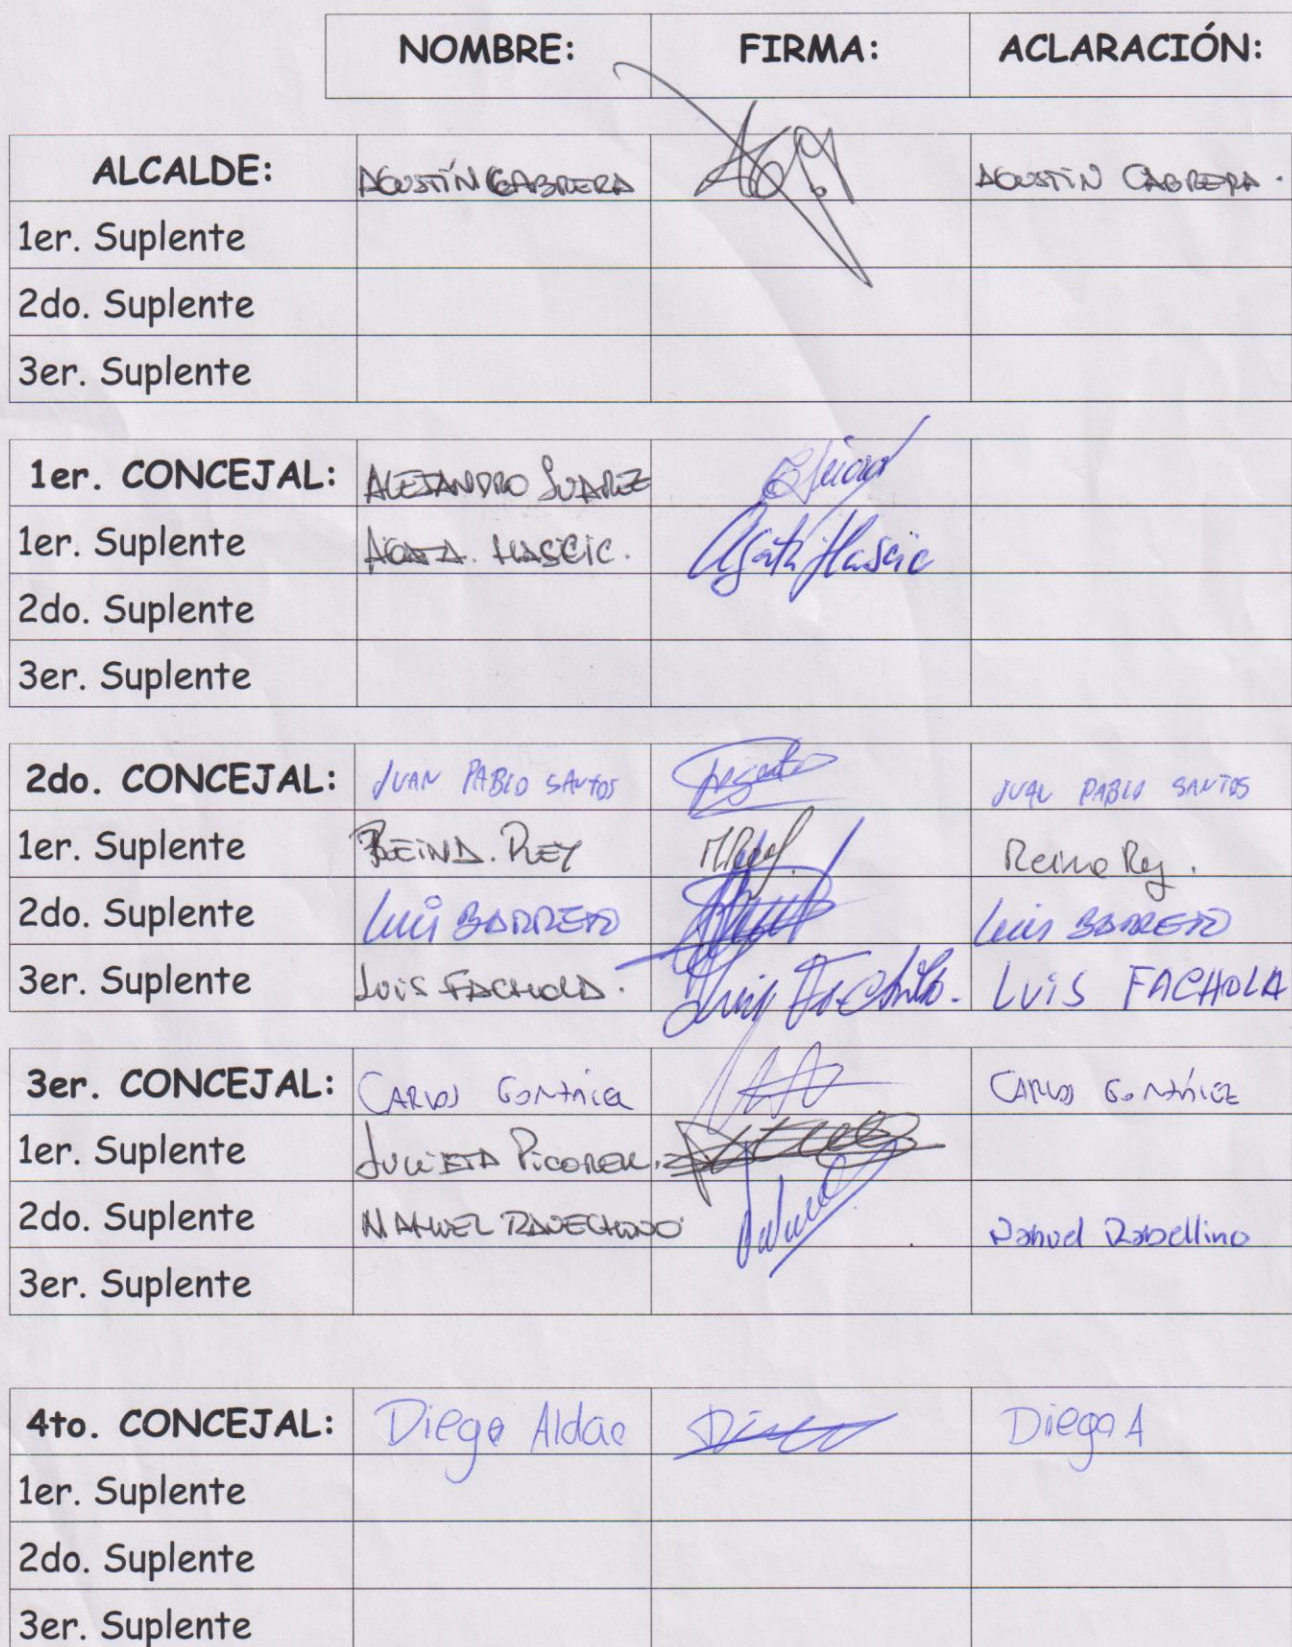 NOMBRE: FIRMA: ACLARACIÓN:
ALCALDE: AGUSTÍN CABRERA AGUSTÍN CABRERA.
1er. Suplente
2do. Suplente
3er. Suplente
1er. CONCEJAL: ALEJANDRO SUAREZ
1er. Suplente AGATA. HASCIC. Agata Hascic
2do. Suplente
3er. Suplente
2do. CONCEJAL: JUAN PABLO SANTOS JUAN PABLO SANTOS
1er. Suplente REINA. REY Reina Rey.
2do. Suplente Luis BARRETO Luis BARRETO
3er. Suplente LUIS FACHOLA. Luis Fachola. LUIS FACHOLA
3er. CONCEJAL: CARLOS CARLOS
1er. Suplente JULIETA
2do. Suplente Nahuel Rabellino
3er. Suplente
4to. CONCEJAL: Diego Aldac Diego A
1er. Suplente
2do. Suplente
3er. Suplente